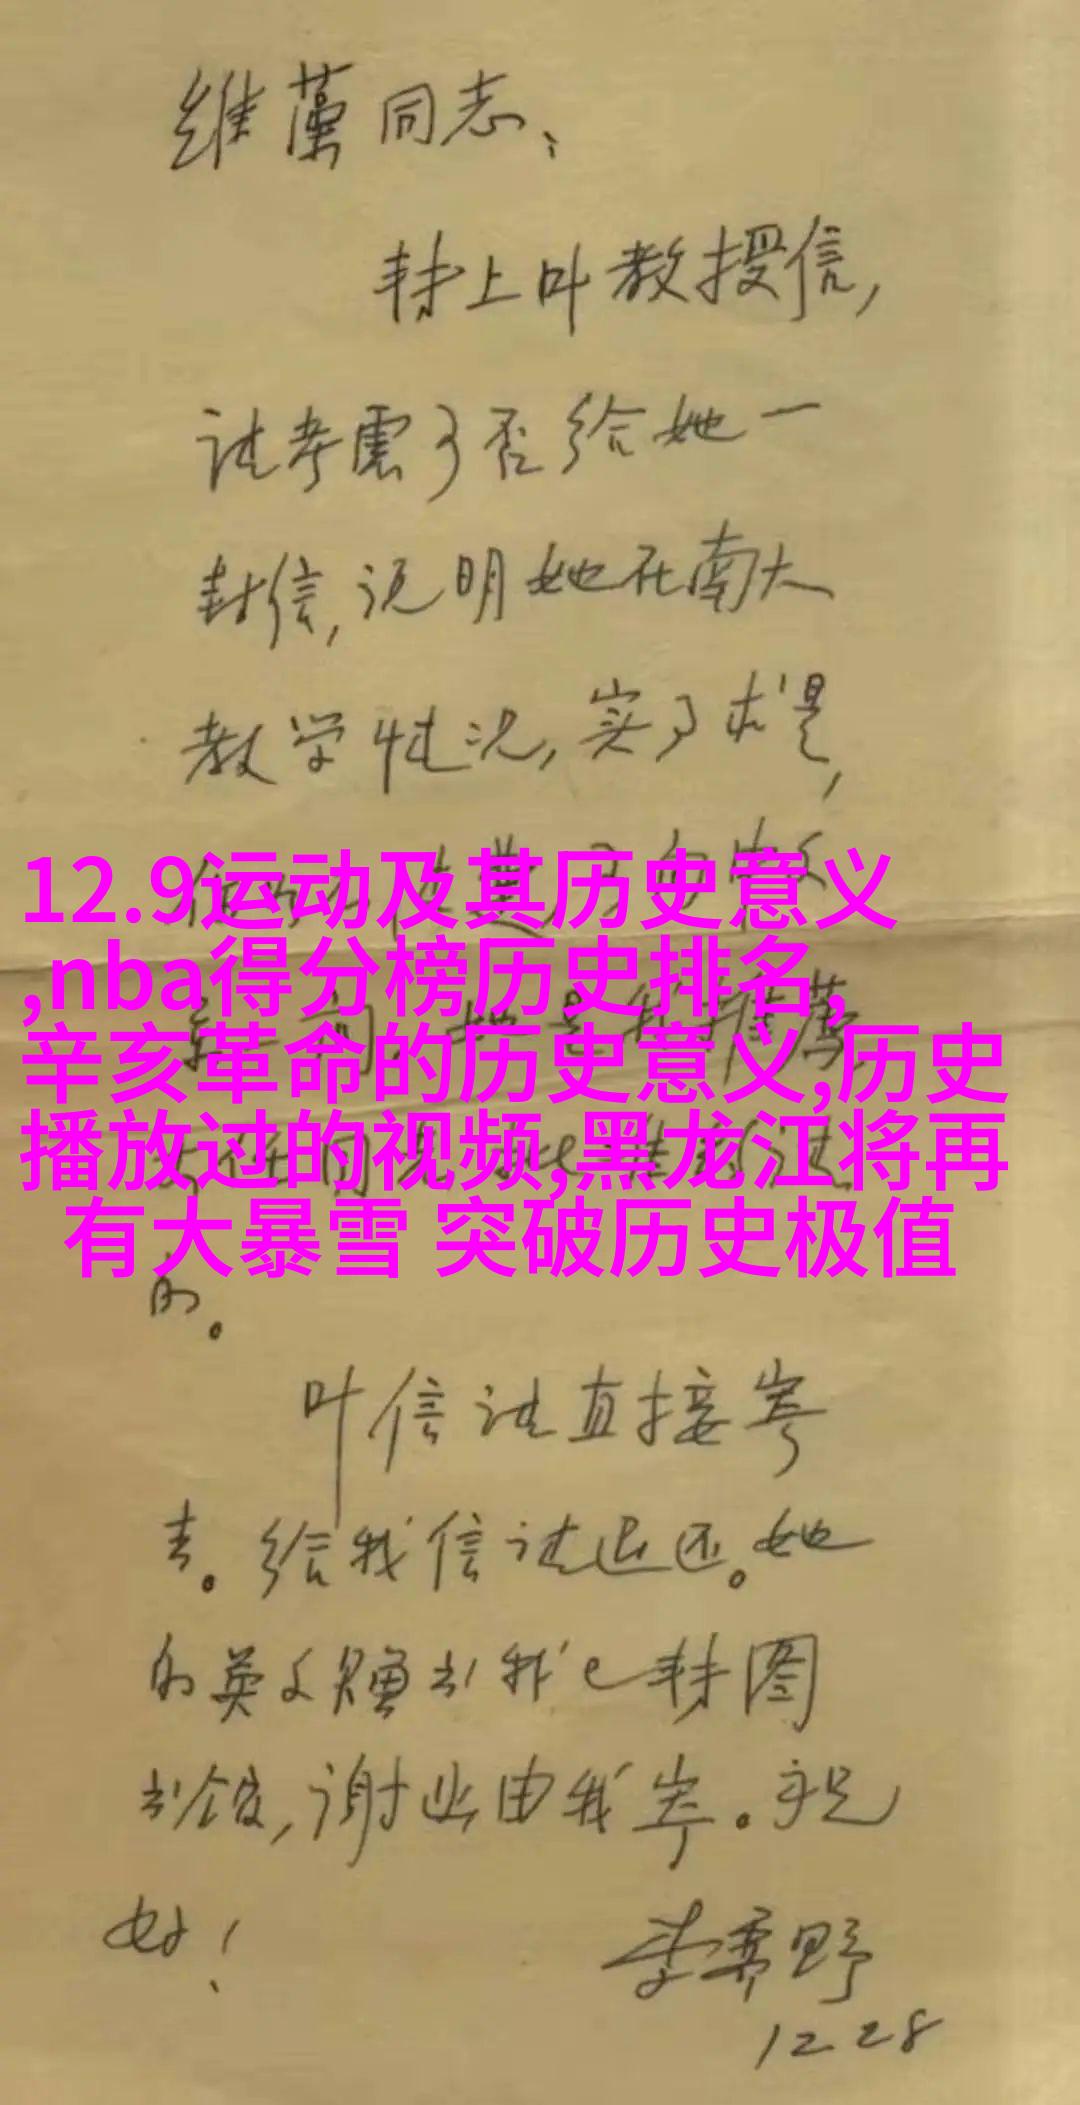 维藻同志：
转上叶教授信，
请考虑可否给她一
封信，说明她在南大
教学情况，实事求是，
12.9运动及其历史意义
,nba得分榜历史排名,
辛亥革命的历史意义,历史
播放过的视频,黑龙江将再
有大暴雪 突破历史极值
的。
叶信请直接寄
去。给我信请退还。她
的英文赠书我已转图
书馆，谢也由我寄。祝
好！
李霁野
12 28